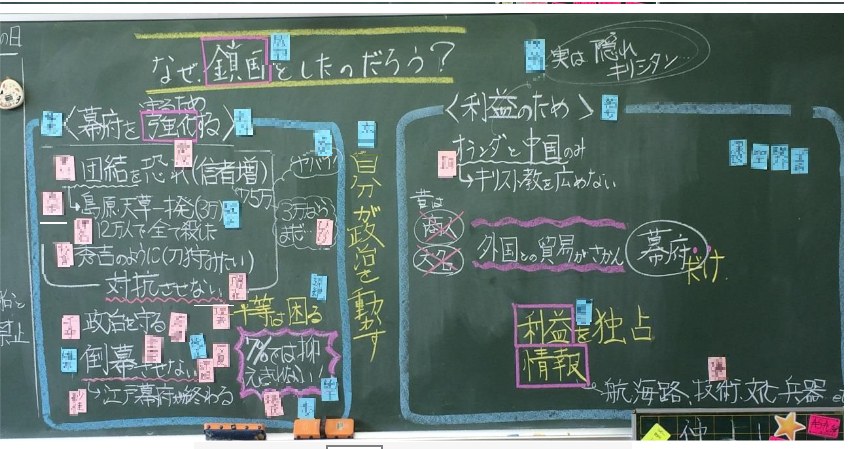 の日
なぜ、鎖国としたのだろう?
〈幕府を強化する〉
守るため
団結を恐れ(信者増)
75万
ヤバイ!
↳島原・天草一揆(3万)
12万人で全て殺した
3万なら
まだ
秀吉のように(刀狩みたい)
対抗させない
平等は困る
政治を守る
倒幕させない
↳江戸幕府が終わる
7%では抑
えきれない!
自分が政治を動かす
実は 隠れ
キリシタン…
〈利益のため〉
オランダと中国のみ
↳キリスト教を広めない
昔は
商人
大名
外国との貿易がさかん
幕府だけ
利益を独占
情報
航海路、技術、文化、兵器
禁止